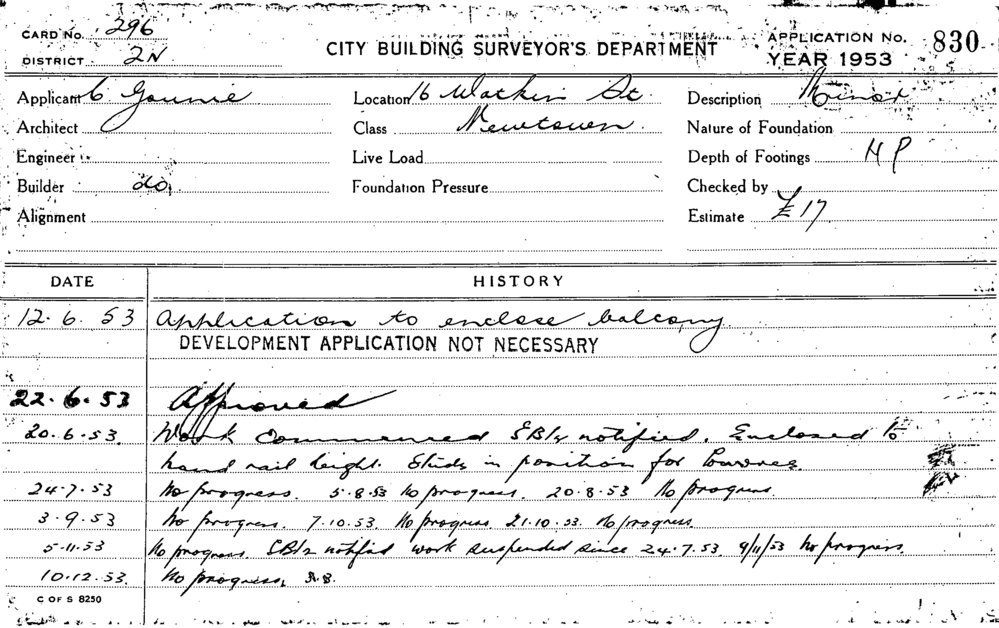 CARD No. 296
DISTRICT 2N
CITY BUILDING SURVEYOR'S DEPARTMENT
APPLICATION No. 830
YEAR 1953
Applicant C
Location 16 Watkin St.
Description Minor
Architect
Class Newtown
Nature of Foundation
Engineer
Live Load
Depth of Footings HP
Builder do
Foundation Pressure
Checked by
Alignment
Estimate £17
DATE
HISTORY
12.6.53 Application to enclose balcony
DEVELOPMENT APPLICATION NOT NECESSARY
22.6.53 Approved
20.6.53 Work commenced notified. Enclosed to
hand rail height. Studs in position for louvres
24.7.53 No progress. 5.8.53 No progress. 20.8.53 No progress
3.9.53 No progress. 7.10.53. No progress. 21.10.53. No progress
5.11.53 No progress. notified work suspended since 24.7.53. 9/11/53 No progress.
10.12.53. No progress,
C OF S 8250